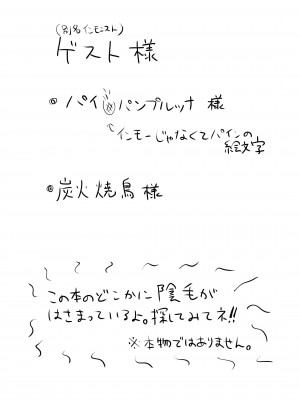 (別名インモニスト)
ゲスト様
◎ パイ パンプルッナ 様
インモーじゃなくてパインの
絵文字
◎炭火焼鳥様
この本のどこかに陰毛が
はさまっているよ。探してみてネ!!
※本物ではありません。